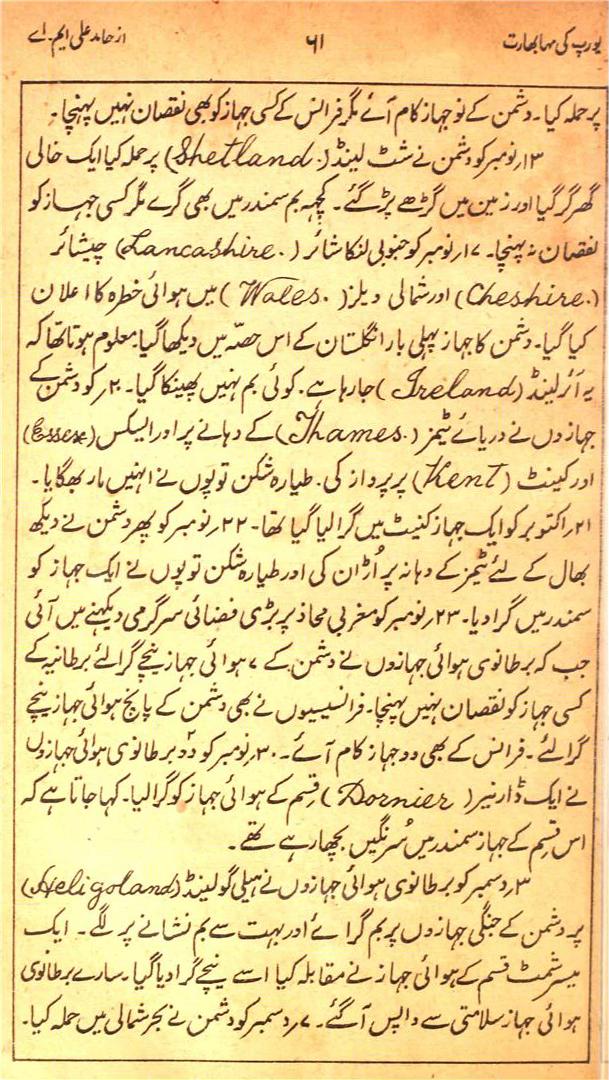 یورپ کی مہابھارت ۶۱ از حامد علی ایم۔اے
پر حملہ کیا۔ دشمن کے نو جہاز کام آئے مگر فرانس کے کسی جہاز کو بھی نقصان نہیں پہنچا۔
۱۳؍نومبر کو دشمن نے شٹ لینڈ (Shetland.) پر حملہ کیا ایک خالی
گھر گر گیا اور زمین میں گڑھے پڑ گئے۔ کچھ بم سمندر میں بھی گرے مگر کسی جہاز کو
نقصان نہ پہنچا۔ ۱۷؍نومبر کو جنوبی لنکا شائر (Lancashire.) چیشائر
(Cheshire.) اور شمالی ویلز (Wales.) میں ہوائی خطرہ کا اعلان
کیا گیا۔ دشمن کا جہاز پہلی بار انگلستان کے اس حصہ میں دیکھا گیا۔ معلوم ہوتا تھا کہ
یہ آئرلینڈ (Ireland) جا رہا ہے۔ کوئی بم نہیں پھینکا گیا۔ ۲۰؍کو دشمن کے
جہازوں نے دریائے ٹیمز (Thames.) کے دہانے پر اور ایسکس (Essex)
اور کینٹ (Kent) پر پرواز کی۔ طیارہ شکن توپوں نے انہیں مار بھگایا۔
۲۱؍اکتوبر کو ایک جہاز کنیٹ میں گرا لیا گیا تھا۔ ۲۲؍نومبر کو پھر دشمن نے دیکھ
بھال کے لئے ٹیمز کے دہانہ پر اُڑان کی اور طیارہ شکن توپوں نے ایک جہاز کو
سمندر میں گرا دیا۔ ۲۳؍نومبر کو مغربی محاذ پر بڑی فضائی سرگرمی دیکھنے میں آئی
جب کہ برطانوی ہوائی جہازوں نے دشمن کے ۷ ہوائی جہاز نیچے گرالئے برطانیہ کے
کسی جہاز کو نقصان نہیں پہنچا۔ فرانسیسیوں نے بھی دشمن کے پانچ ہوائی جہاز نیچے
گرالئے۔ فرانس کے بھی دو جہاز کام آئے۔ ۳۰؍نومبر کو دو برطانوی ہوائی جہازوں
نے ایک ڈارنیر (Dornier) قسم کے ہوائی جہاز کو گرا لیا۔ کہا جاتا ہے کہ
اس قسم کے جہاز سمندر میں سُرنگیں بچھا رہے تھے۔
۳؍دسمبر کو برطانوی ہوائی جہازوں نے ہیلی گولینڈ (Heligoland)
پر دشمن کے جنگی جہازوں پر بم گرائے اور بہت سے بم نشانے پر لگے۔ ایک
میسر شمٹ قسم کے ہوائی جہاز نے مقابلہ کیا اسے نیچے گرا دیا گیا۔ سارے برطانوی
ہوائی جہاز سلامتی سے واپس آ گئے۔ ۷؍دسمبر کو دشمن نے بحر شمالی میں حملہ کیا۔